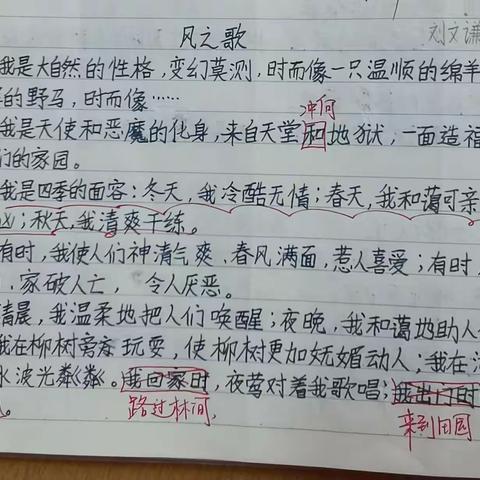 风之歌
刘文谦
我是大自然的性格，变幻莫测，时而像一只温顺的绵羊
的野马，时而像……
冲向
我是天使和恶魔的化身，来自天堂和地狱，一面造福
们的家园。
我是四季的面容：冬天，我冷酷无情；春天，我和蔼可亲
；秋天，我清爽干练。
有时，我使人们神清气爽、春风满面，惹人喜爱；有时，
、家破人亡，令人厌恶。
清晨，我温柔地把人们唤醒；夜晚，我和蔼地助人
我在柳树旁玩耍，使柳树更加妩媚动人；我在
水波光粼粼。我回家时，夜莺对着我歌唱；我出门时
路过林间，
来到田园